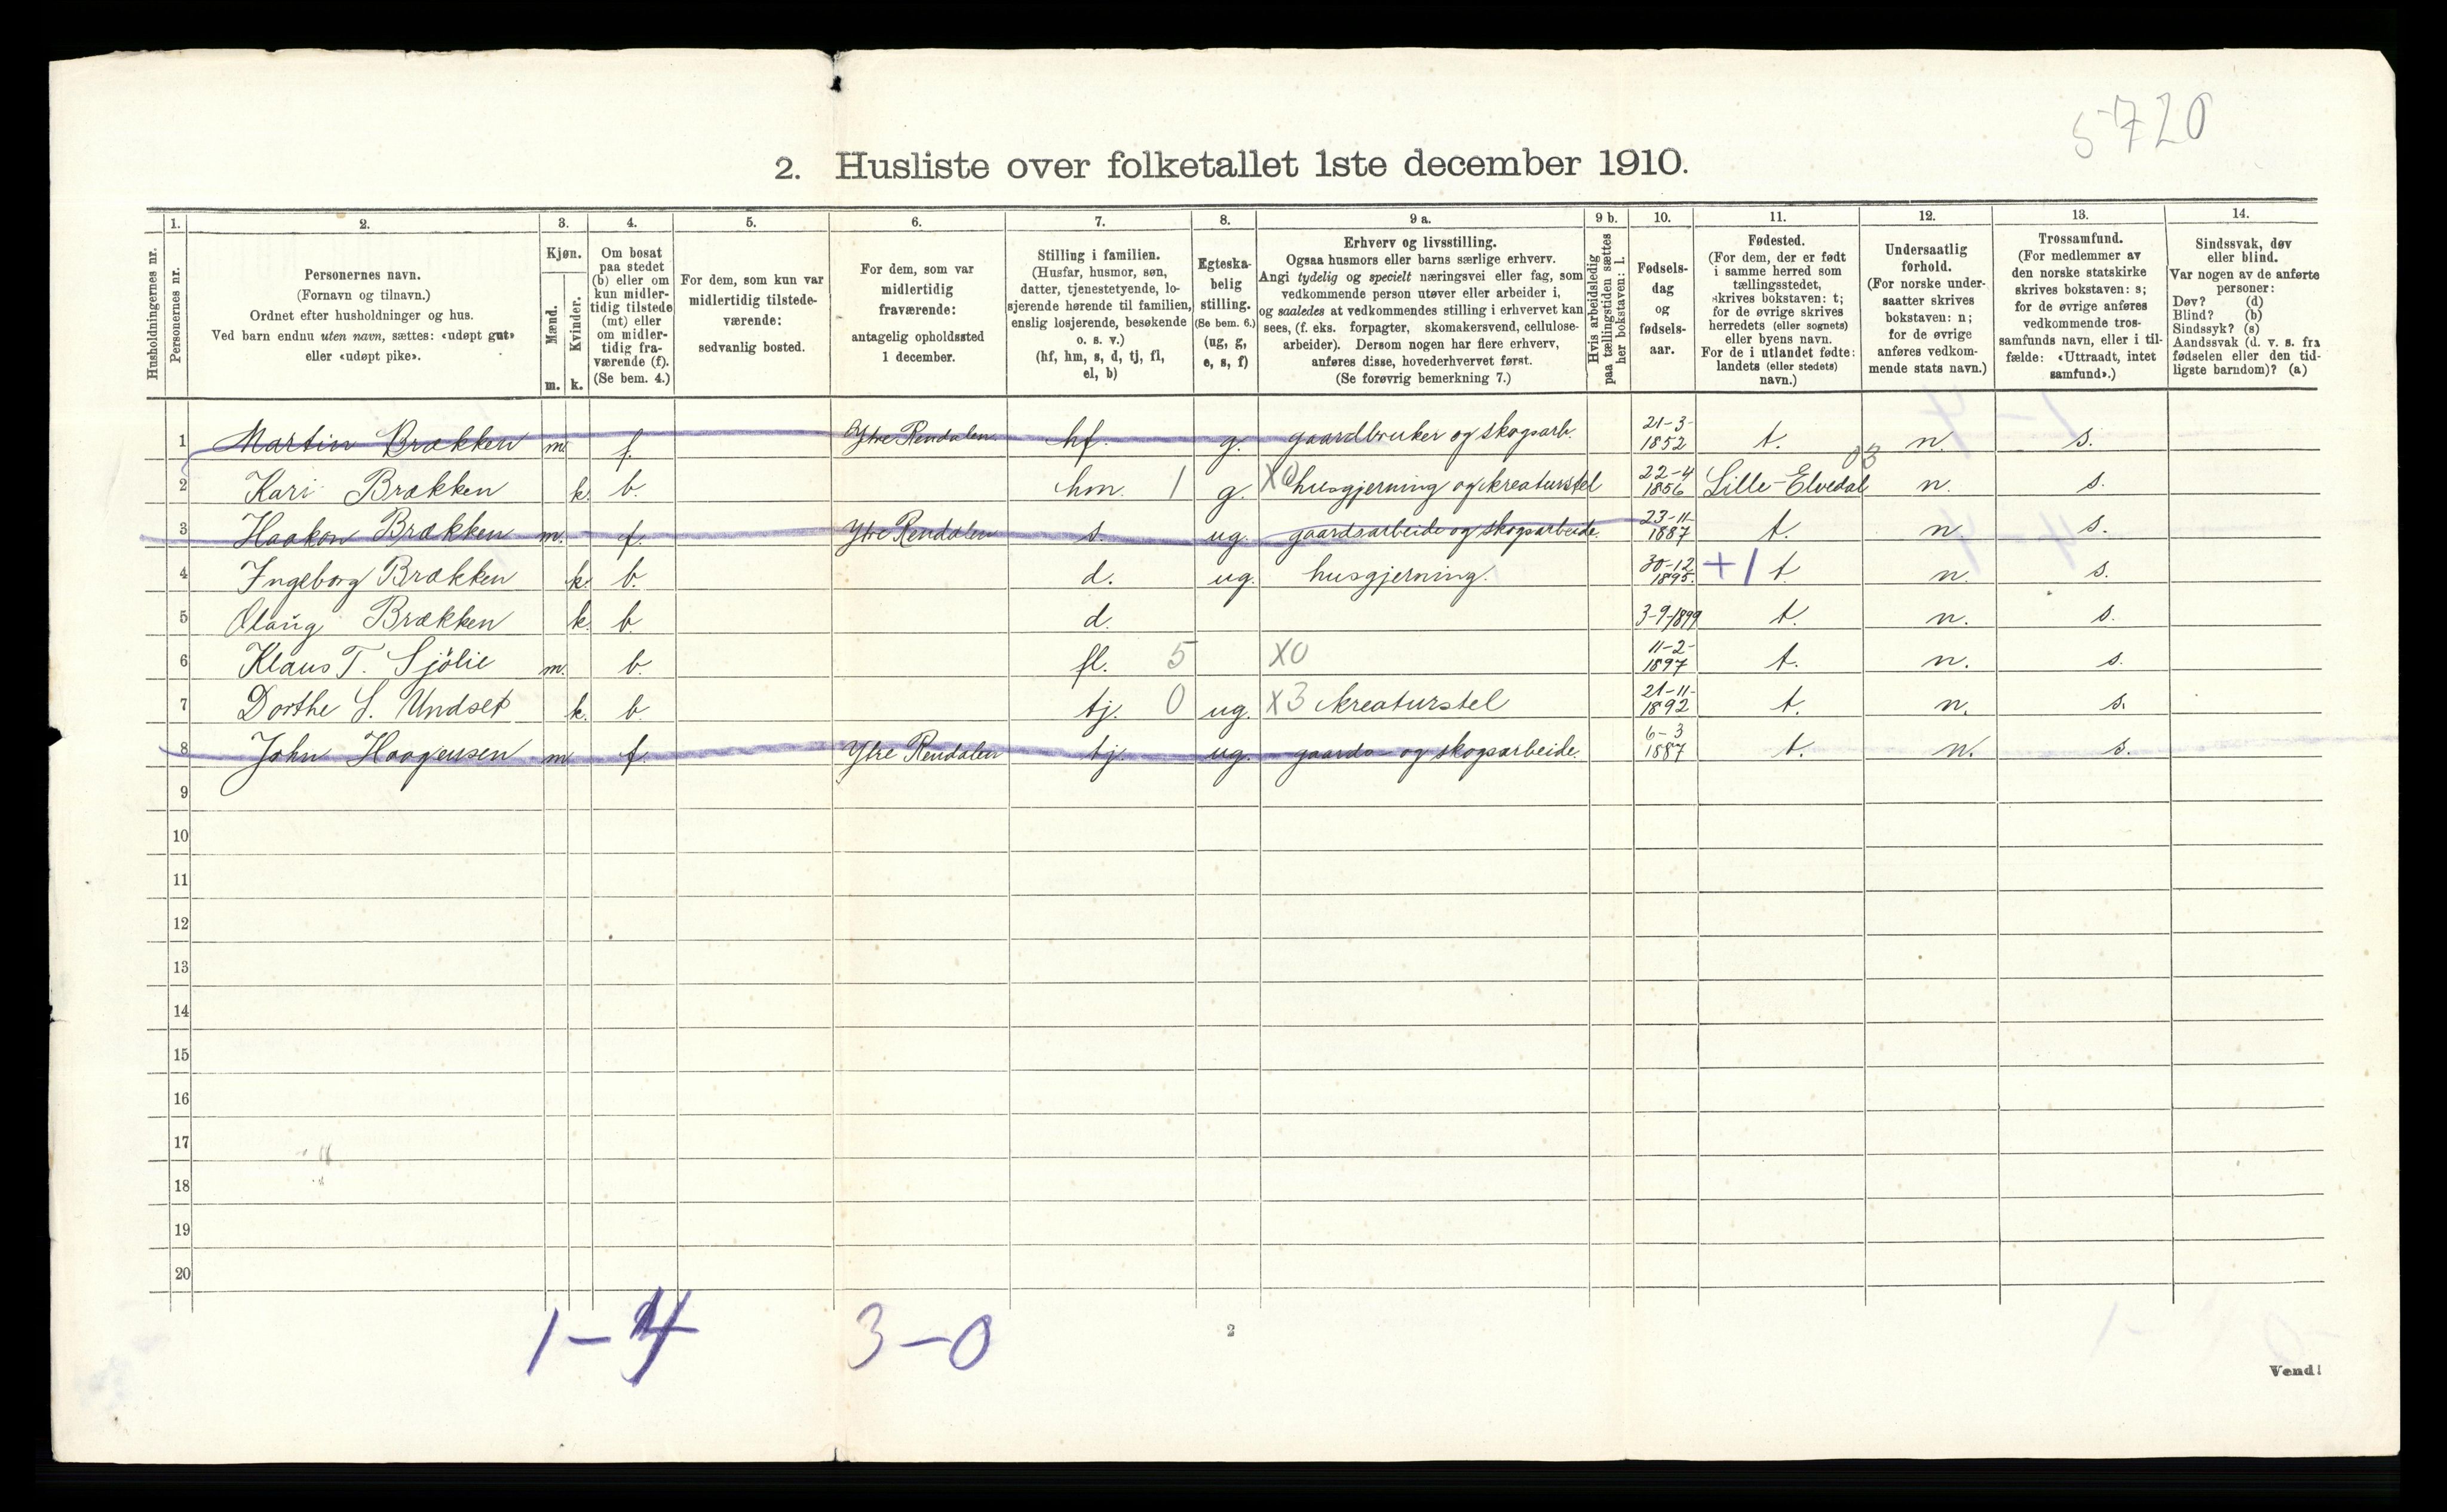 5720
2. Husliste over folketallet 1ste december 1910.
Husholdningernes nr.
1. Personernes nr.
2. Personernes navn.
(Fornavn og tilnavn.)
Ordnet efter husholdninger og hus.
Ved barn endnu uten navn, sættes: «udøpt gut»
eller «udøpt pike».
3. Kjøn.
Mænd. m.
Kvinder. k.
4. Om bosat
paa stedet
(b) eller om
kun midler-
tidig tilstede
(mt) eller
om midler-
tidig fra-
værende (f).
(Se bem. 4.)
5. For dem, som kun var
midlertidig tilstede-
værende:
sedvanlig bosted.
6. For dem, som var
midlertidig
fraværende:
antagelig opholdssted
1 december.
7. Stilling i familien.
(Husfar, husmor, søn,
datter, tjenestetyende, lo-
sjerende hørende til familien,
enslig losjerende, besøkende
o. s. v.)
(hf, hm, s, d, tj, fl,
el, b)
8. Egteska-
belig
stilling.
(Se bem. 6.)
(ug, g,
e, s, f)
9 a. Erhverv og livsstilling.
Ogsaa husmors eller barns særlige erhverv.
Angi tydelig og specielt næringsvei eller fag, som
vedkommende person utøver eller arbeider i,
og saaledes at vedkommendes stilling i erhvervet kan
sees, (f. eks. forpagter, skomakersvend, cellulose-
arbeider). Dersom nogen har flere erhverv,
anføres disse, hovederhvervet først.
(Se forøvrig bemerkning 7.)
9 b. Hvis arbeidsledig
paa tællingstiden sættes
her bokstaven: l.
10. Fødsels-
dag
og
fødsels-
aar.
11. Fødested.
(For dem, der er født
i samme herred som
tællingsstedet,
skrives bokstaven: t;
for de øvrige skrives
herredets (eller sognets)
eller byens navn.
For de i utlandet fødte:
landets (eller stedets)
navn.)
12. Undersaatlig
forhold.
(For norske under-
saatter skrives
bokstaven: n;
for de øvrige
anføres vedkom-
mende stats navn.)
13. Trossamfund.
(For medlemmer av
den norske statskirke
skrives bokstaven: s;
for de øvrige anføres
vedkommende tros-
samfunds navn, eller i til-
fælde: «Uttraadt, intet
samfund».)
14. Sindssvak, døv
eller blind.
Var nogen av de anførte
personer:
Døv? (d)
Blind? (b)
Sindssyk? (s)
Aandssvak (d. v. s. fra
fødselen eller den tid-
ligste barndom)? (a)
1 Martin Brækken m. f. Ytre Rendalen hf. g. gaardbruker og skogsarb. 21-3-1852 t. n. s.
2 Kari Brækken k. b. hm. 1 g. X0 husgjerning og kreaturstel 22-4 1856 Lille-Elvedal 03 n. s.
3 Haakon Brækken m. f. Ytre Rendalen s. ug. gaardsarbeide og skogsarbeide. 23-11-1887 t. n. s.
4 Ingeborg Brækken k. b. d. ug. husgjerning. 30-12 1895. +1 t n. s.
5 Olaug Brækken k. b. d. 3-9-1899 t. n. s.
6 Klaus T. Sjölie m. b. fl. 5 X0 11-2-1897 t. n. s.
7 Dorthe S. Undset k. b. tj. 0 ug. X3 kreaturstel 21-11-1892 t. n. s.
8 John Haagensen m f. Ytre Rendalen tj. ug. gaards- og skogsarbeide. 6-3 1887 t. n. s.
9
10
11
12
13
14
15
16
17
18
19
20
1-4 3-0
2
Vend!